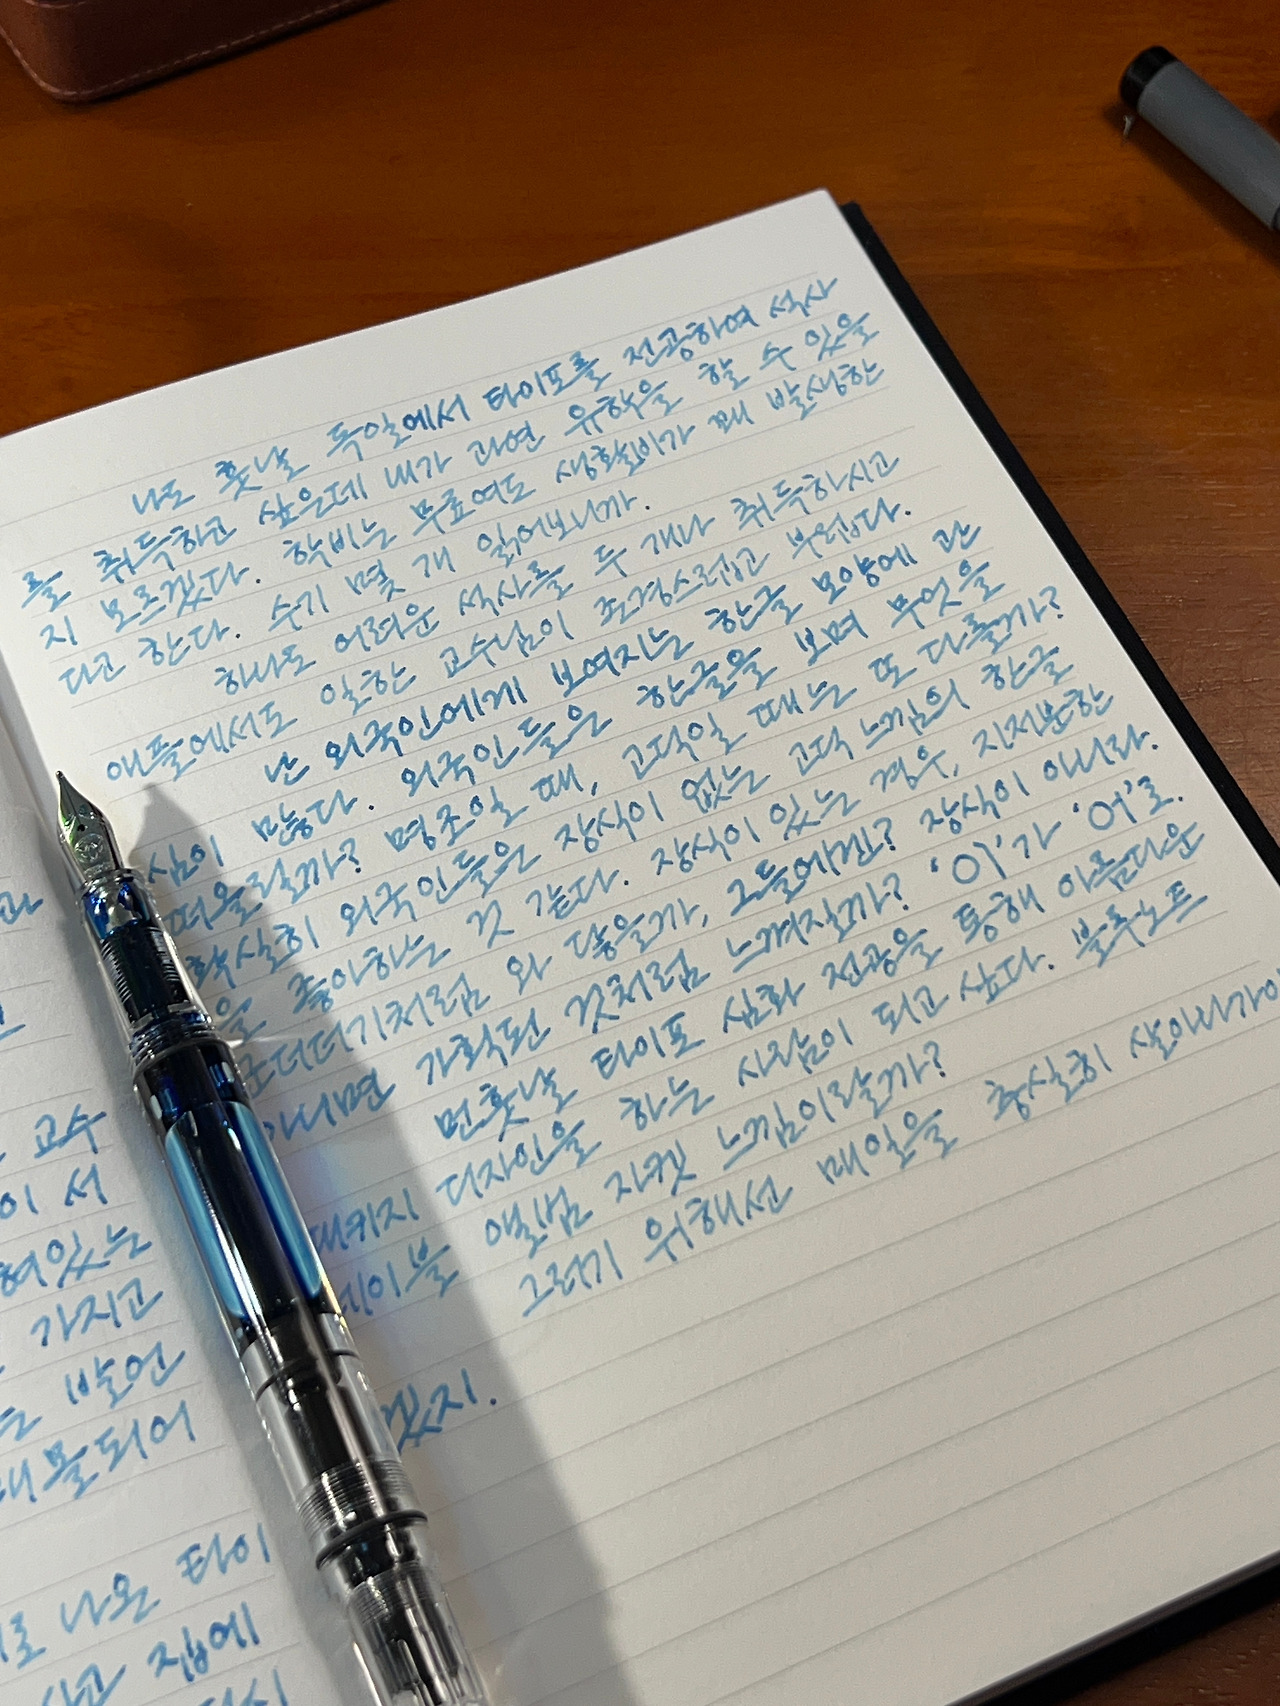 나도 훗날 독일에서 타이포를 전공하여 석사
를 취득하고 싶은데 내가 과연 유학을 할 수 있을
지 모르겠다. 학비는 무료여도 생활비가 꽤 발생한
다고 한다. 수기 몇 개 읽어보니까.
하나도 어려운 석사를 두 개나 취득하시고
애플에서도 일한 교수님이 존경스럽고 부럽다.
난 외국인에게 보여지는 한글 모양에 관
심이 많다. 외국인들은 한글을 보며 무엇을
떠올릴까? 명조일 때, 고딕일 때는 또 다를까?
확실히 외국인들은 장식이 없는 고딕 느낌의 한글
을 좋아하는 것 같다. 장식이 있는 경우, 지저분한
더더기처럼 와 닿을까, 그들에겐? 장식이 아니라.
아니면 가획된 것처럼 느껴질까? '이'가 '어'로.
먼훗날 타이포 심화 전공을 통해 아름다운
패키지 디자인을 하는 사람이 되고 싶다. 블루노트
레이블 앨범 자켓 느낌이랄까?
그러기 위해선 매일을 충실히 살아나가야
겠지.
교수
이 서
여있는
가지고
는 발언
매몰되어
로 나온 타이
집에